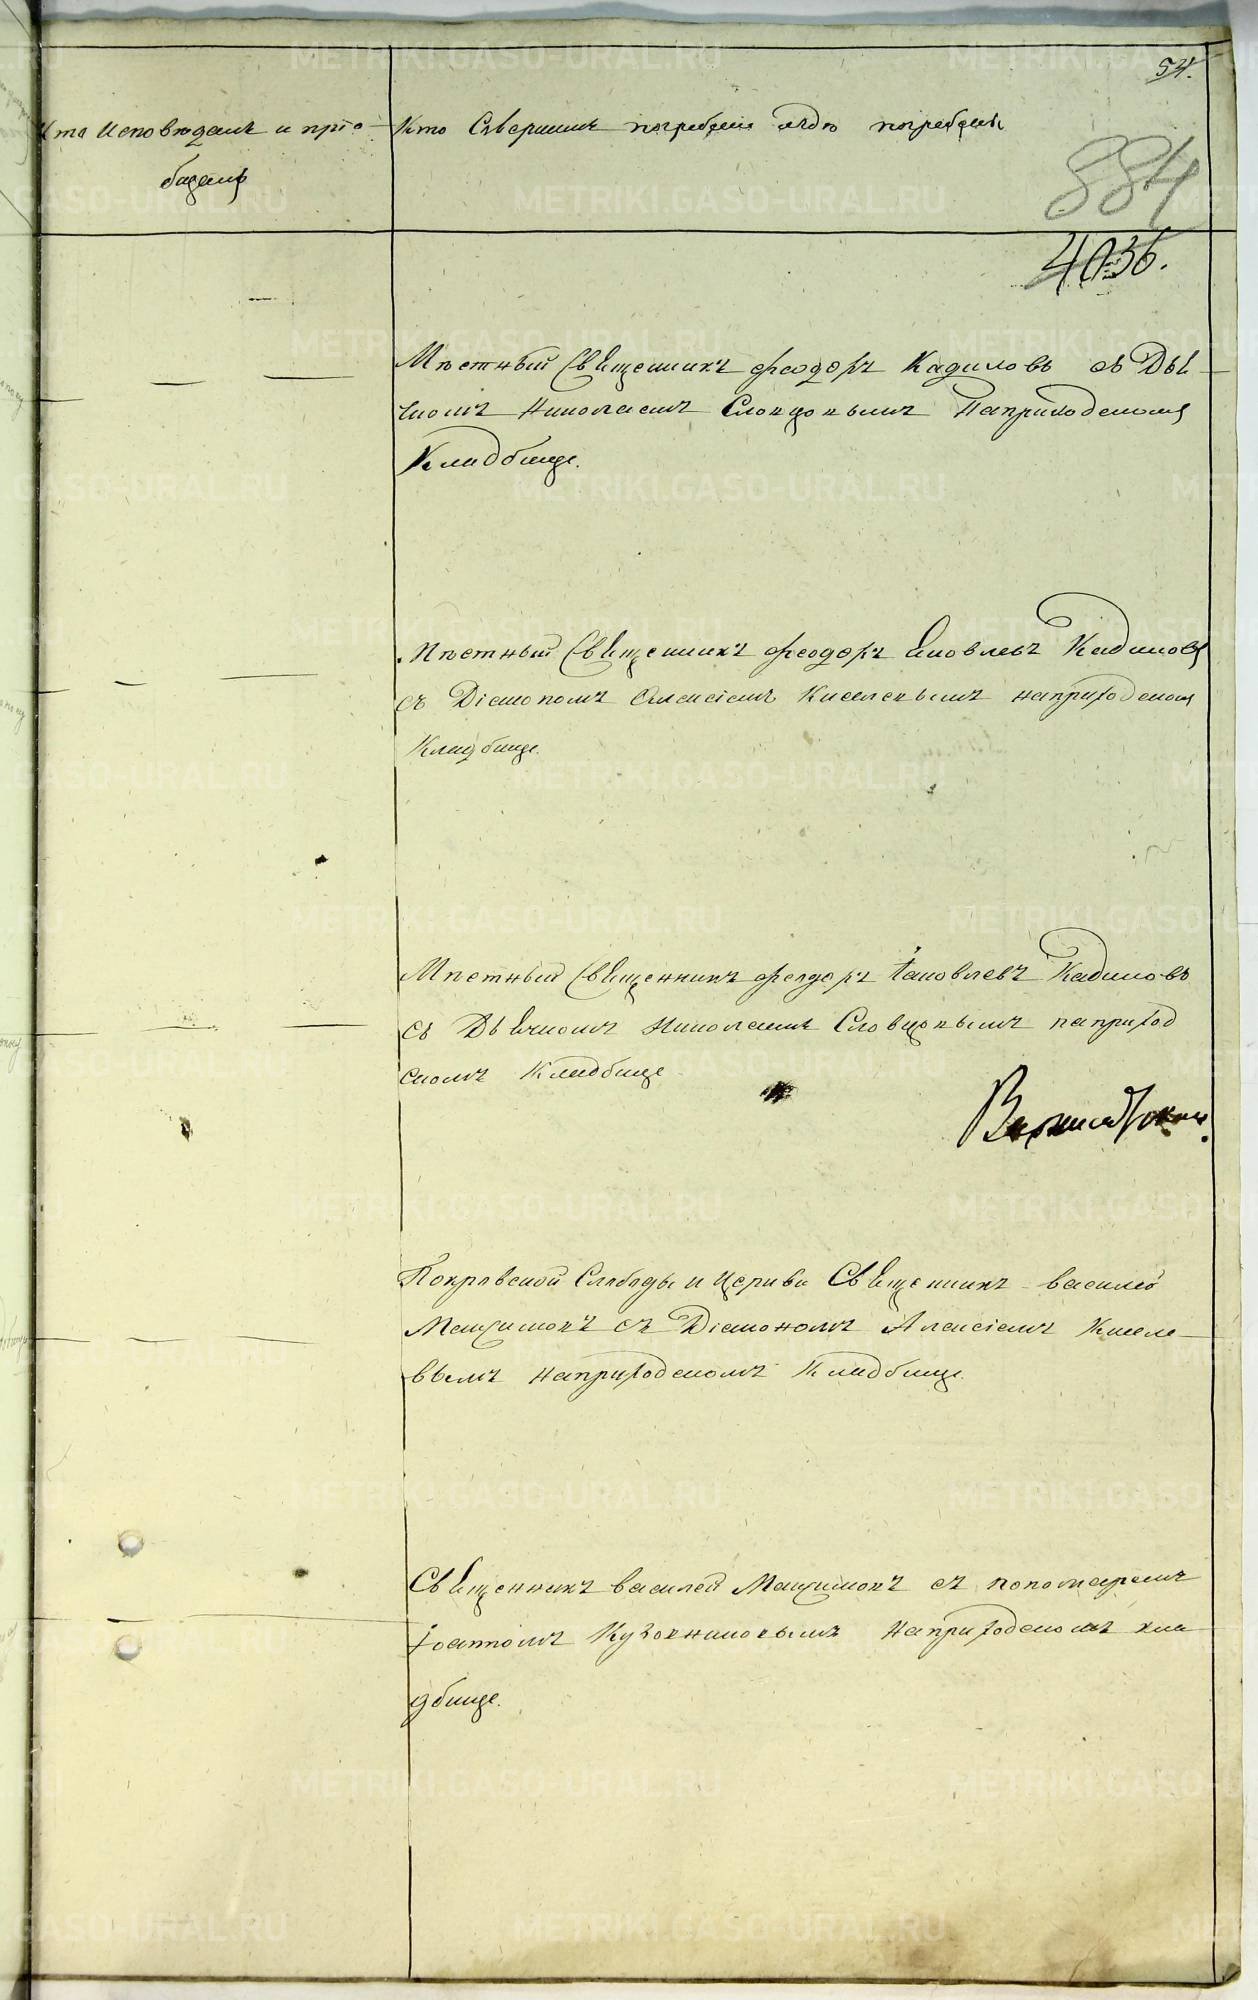 54.
Кто Исповѣдалъ и прiо-
бщалъ
Кто Совершилъ погребенiе и гдѣ погребены
884
4036.
Мѣстный Священникъ Феодоръ Кадиловъ съ Дья-
чкомъ Николаемъ Словцовымъ На приходскомъ
Кладбище.
Мѣстный Священникъ Феодоръ Яковлевъ Кадиловъ
съ Дiакономъ Алексiемъ Киселевымъ на приходскомъ
Кладбище.
Мѣстный Священникъ Феодоръ Iаковлевъ Кадиловъ
съ Дьячкомъ Николаемъ Словцовымъ на приход
скомъ Кладбище.
Покровской Слободы и Церкви Священникъ Василей
съ Дiакономъ Алексiемъ Кисле-
вымъ на приходскомъ Кладбище.
Священникъ Василей съ пономаремъ
Iоанномъ на приходскомъ кла
дбище.
METRIKI.GASO-URAL.RU